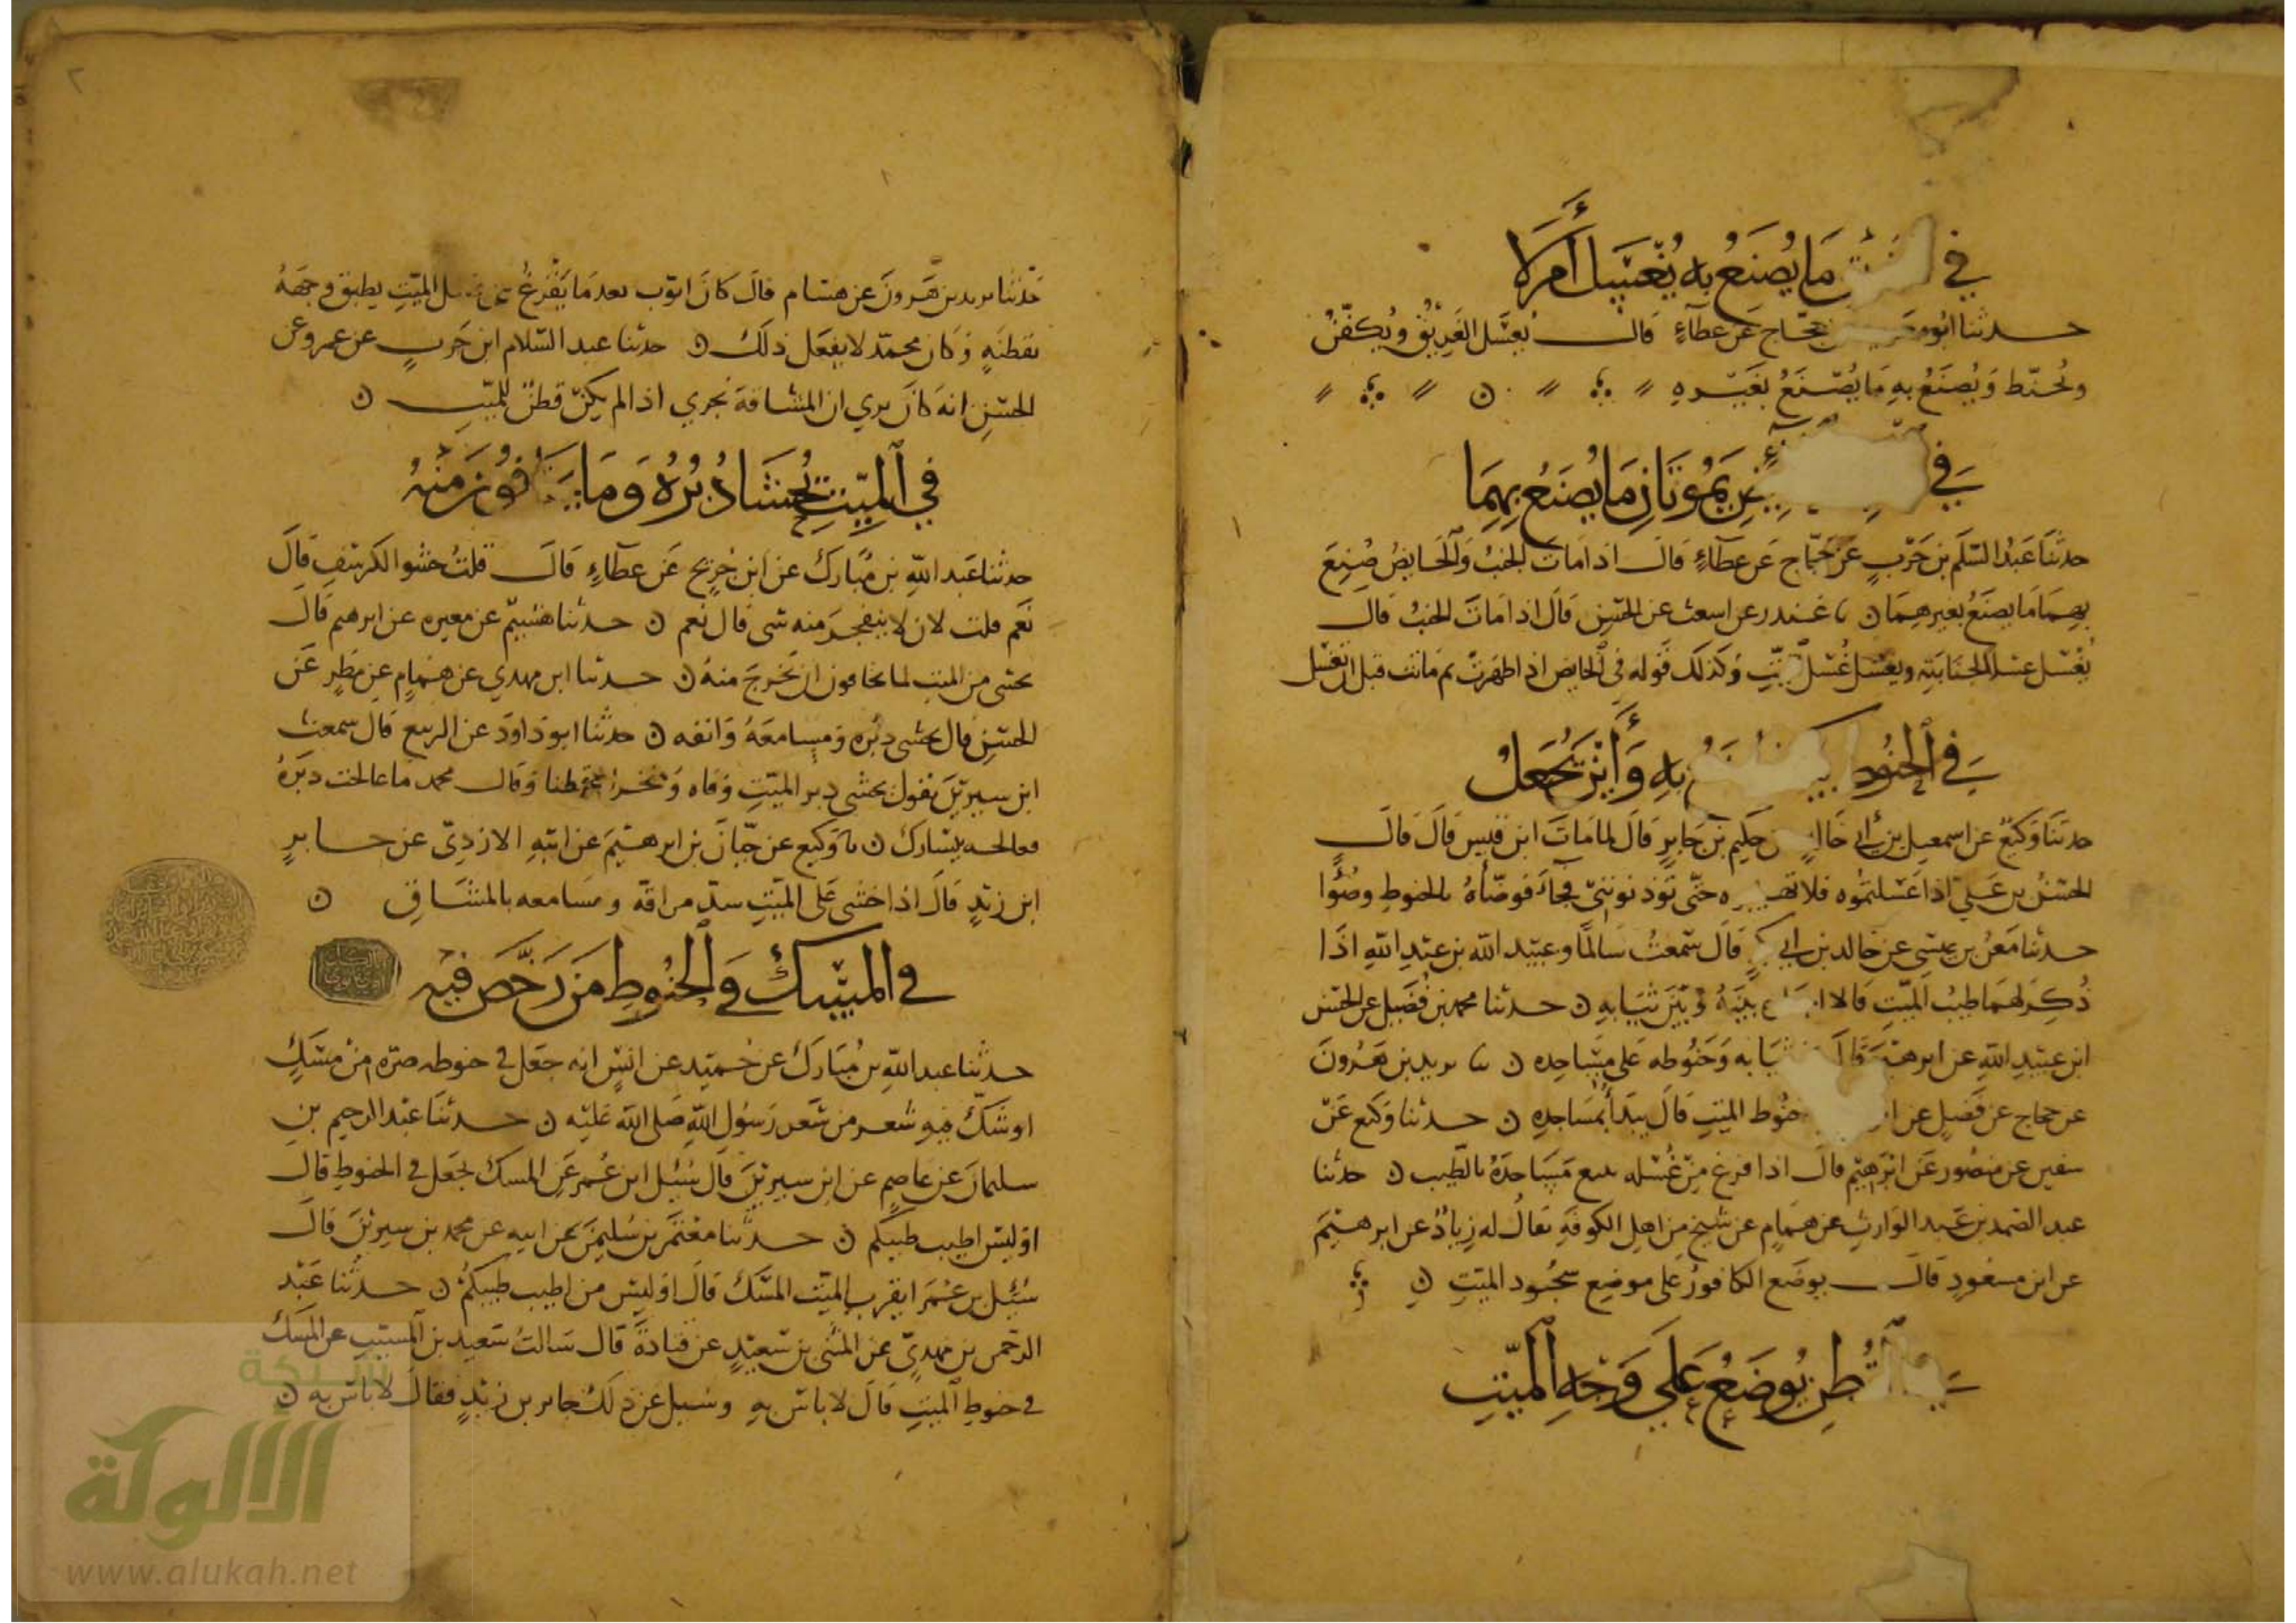 في الغريق ما يصنع به يغسل أم لا
حدثنا ابو معوية عن حجاج عن عطاء قال يغسل الغريق ويكفن
ويحنط ويصنع به ما يصنع بغيره
في يموتان ما يصنع بهما
حدثنا عبد السلم بن حرب عن حجاج عن عطاء قال اذا مات الجنب والحايض صنع
بهما ما يصنع بغيرهما ن نا غندر عن اسعث عن الحسن قال اذا مات الجنب قال
يغسل غسل الجنابة ويغسل غسل الميت وكذلك قوله في الحايض اذا طهرت ثم ماتت قبل ان تغسل
في الحنوط كيف يصنع به وأين يجعل
حدثنا وكيع عن اسمعيل بن أبي خالد عن حكيم بن جابر قال لما مات ابن قيس قال قال
الحسن بن علي اذا غسلتموه فلا تهيجوه حتى تؤذنونني فجاء فوضأه بالحنوط وضوا
حدثنا معن بن عيسى عن خالد بن ابي بكر قال سمعت سالما وعبيد الله بن عبد الله اذا
ذكر لهما طيب الميت قالا اجعله بينه وبين ثيابه ن حدثنا محمد بن فضيل عن الحسن
ابن عبيد الله عن ابرهيم قال ثيابه وحنوطه على مساجده ن نا يزيد بن هرون
عن حجاج عن فضيل عن حنوط الميت قال يبدأ بمساجده ن حدثنا وكيع عن
سفين عن منصور عن ابرهيم قال اذا فرغ من غسله تتبع مساجده بالطيب ن حدثنا
عبد الصمد بن عبد الوارث عن همام عن شيخ من اهل الكوفة يقال له زياد عن ابرهيم
عن ابن مسعود قال يوضع الكافور على موضع سجود الميت ن
في القطن يوضع على وجه الميت
٢
حدثنا يزيد بن هرون عن هشام قال كان ايوب بعد ما يفرغ من غسل الميت يطبق وجهه
بقطنه وكان محمد لا يفعل ذلك ن حدثنا عبد السلام ابن حرب عن عمرو عن
الحسن انه كان يري ان المشاقة تجزي اذا لم يكن قطن للميت ن
في الميت يحشا دبره وما يخافون منه
حدثنا عبد الله بن مبارك عن ابن جريج عن عطاء قال قلت حشو الكرسف قال
نعم قلت لان لا يتفجر منه شي قال نعم ن حدثنا هشيم عن مغيره عن ابرهيم قال
يحشى من الميت لما يخافون ان يخرج منه ن حدثنا ابن مهدي عن همام عن مطر عن
الحسن قال يحشى دبره ومسامعه وانفه ن حدثنا ابو داود عن الربيع قال سمعت
ابن سيرين يقول يحشى دبر الميت وفاه ومنخراه قطنا وقال محمد ما عالجت دبره
فعالجه بيسارك ن نا وكيع عن حبان بن ابرهيم عن امية الازدي عن جابر
ابن زيد قال اذا خشي على الميت سد مراقه ومسامعه بالمشاق ن
في المسك في الحنوط من رخص فيه
حدثنا عبد الله بن مبارك عن حميد عن انس انه جعل في حنوطه صره من مسك
او سك فيه شعر من شعر رسول الله صلى الله عليه ن حدثنا عبد الرحيم بن
سليمان عن عاصم عن ابن سيرين قال سئل ابن عمر عن المسك يجعل في الحنوط قال
او ليس اطيب طيبكم ن حدثنا معتمر بن سليمن عن ابيه عن محمد بن سيرين قال
سئل بن عمر ايقرب الميت المسك قال اوليس من اطيب طيبكم ن حدثنا عبد
الرحمن بن مهدي عن المثنى بن سعيد عن قتادة قال سالت سعيد بن المسيب عن المسك
في حنوط الميت قال لا باس به وسيل عن ذلك جابر بن زيد فقال لا باس به ن
شبكة
الألوكة
www.alukah.net